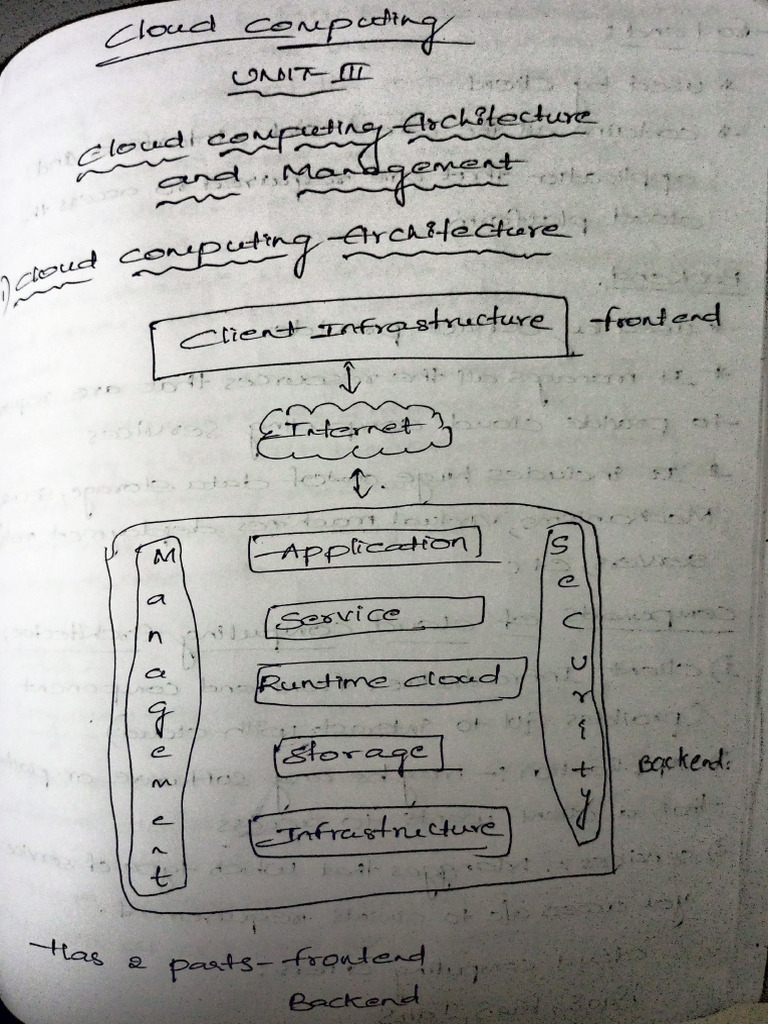 Cloud Computing
UNIT-III
Cloud computing Architecture
and Management
1) Cloud computing Architecture:
Client Infrastructure -frontend
Internet
Management
Application
Service
Runtime cloud
Storage
Infrastructure
Security
Backend:
Has 2 parts- frontend
Backend